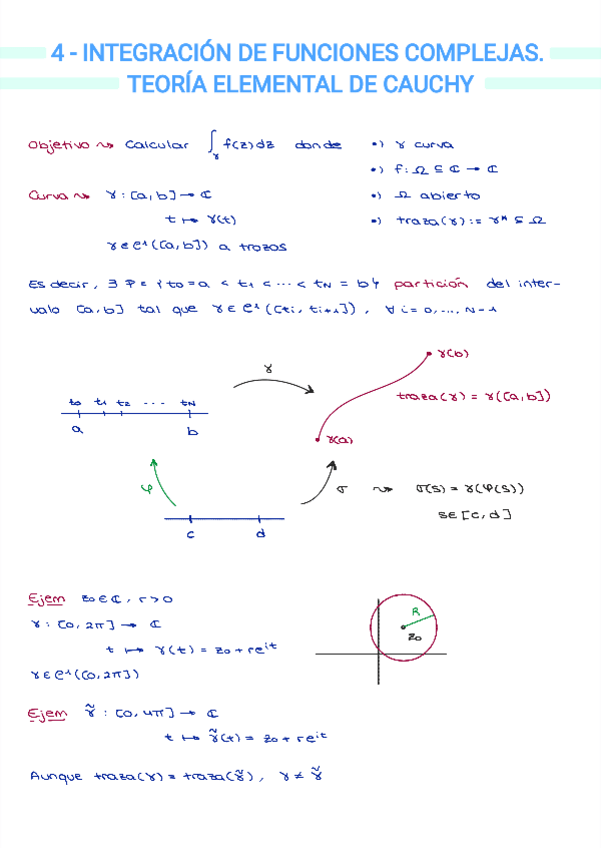 4 - INTEGRACIÓN DE FUNCIONES COMPLEJAS.
TEORÍA ELEMENTAL DE CAUCHY
Objetivo ⇝ Calcular ∫_γ f(z)dz donde •) γ curva
•) f: Ω ⊆ ℂ → ℂ
Curva ⇝ γ: [a,b] → ℂ •) Ω abierto
t ↦ γ(t) •) traza(γ) := γ* ⊆ Ω
γ ∈ C¹([a,b]) a trozos
Es decir, ∃ P = {t₀ = a < t₁ < ··· < t_N = b} partición del inter-
valo [a,b] tal que γ ∈ C¹([tᵢ, tᵢ₊₁]), ∀ i = 0,..., N-1
γ γ(b)
t₀ t₁ t₂ ··· t_N traza(γ) = γ([a,b])
a b γ(a)
φ σ ⇝ σ(s) = γ(φ(s))
c d s ∈ [c,d]
Ejem z₀ ∈ ℂ, r > 0
γ: [0, 2π] → ℂ R
t ↦ γ(t) = z₀ + re^{it} z₀
γ ∈ C¹([0, 2π])
Ejem γ̃ : [0, 4π] → ℂ
t ↦ γ̃(t) = z₀ + re^{it}
Aunque traza(γ) = traza(γ̃), γ ≠ γ̃